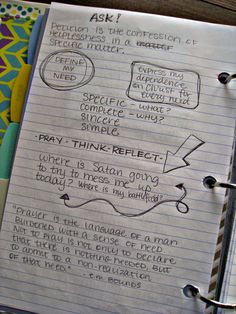 ASK!
Petition is the confession of
helplessness in a
specific matter.
DEFINE
MY
NEED
express my
dependence
on Christ for
every need
SPECIFIC - what?
COMPLETE - why?
SINCERE
SIMPLE
·PRAY·THINK·REFLECT·
where is Satan going
to try to mess me up
today? where is my battlefield?
"Prayer is the language of a man
burdened with a sense of need.
Not to pray is not only to declare
that there is nothing needed, but
to admit to a non-realization
of that need."
- E.M. BOUNDS